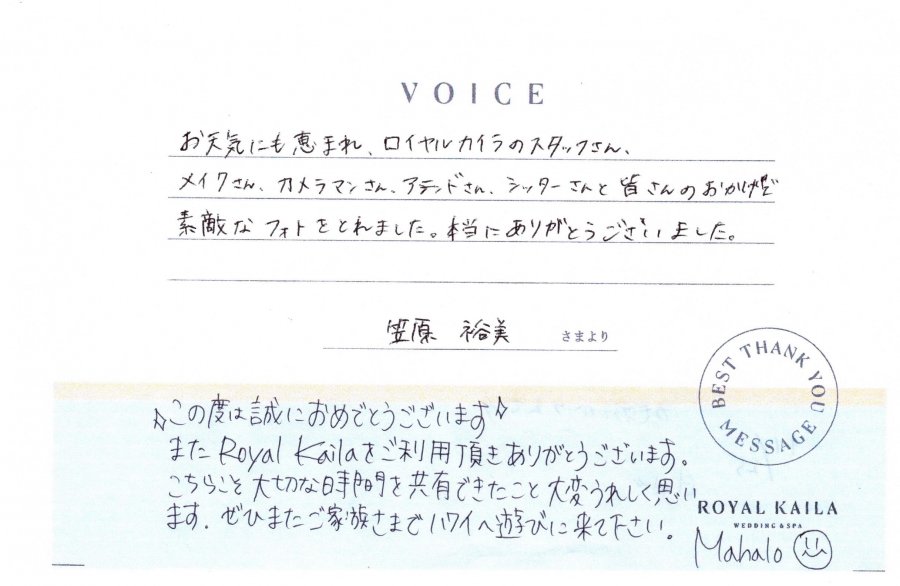 VOICE
お天気にも恵まれ、ロイヤルカイラのスタッフさん、
メイクさん、カメラマンさん、アテンドさん、シッターさんと皆さんのおかげで
素敵なフォトをとれました。本当にありがとうございました。
笠原 裕美 さまより
BEST THANK YOU MESSAGE
この度は誠におめでとうございます
また Royal Kailaをご利用頂きありがとうございます。
こちらこそ大切な時間を共有できたこと大変うれしく思い
ます。ぜひまたご家族さまでハワイへ遊びに来て下さい。
ROYAL KAILA
WEDDING & SPA
Mahalo